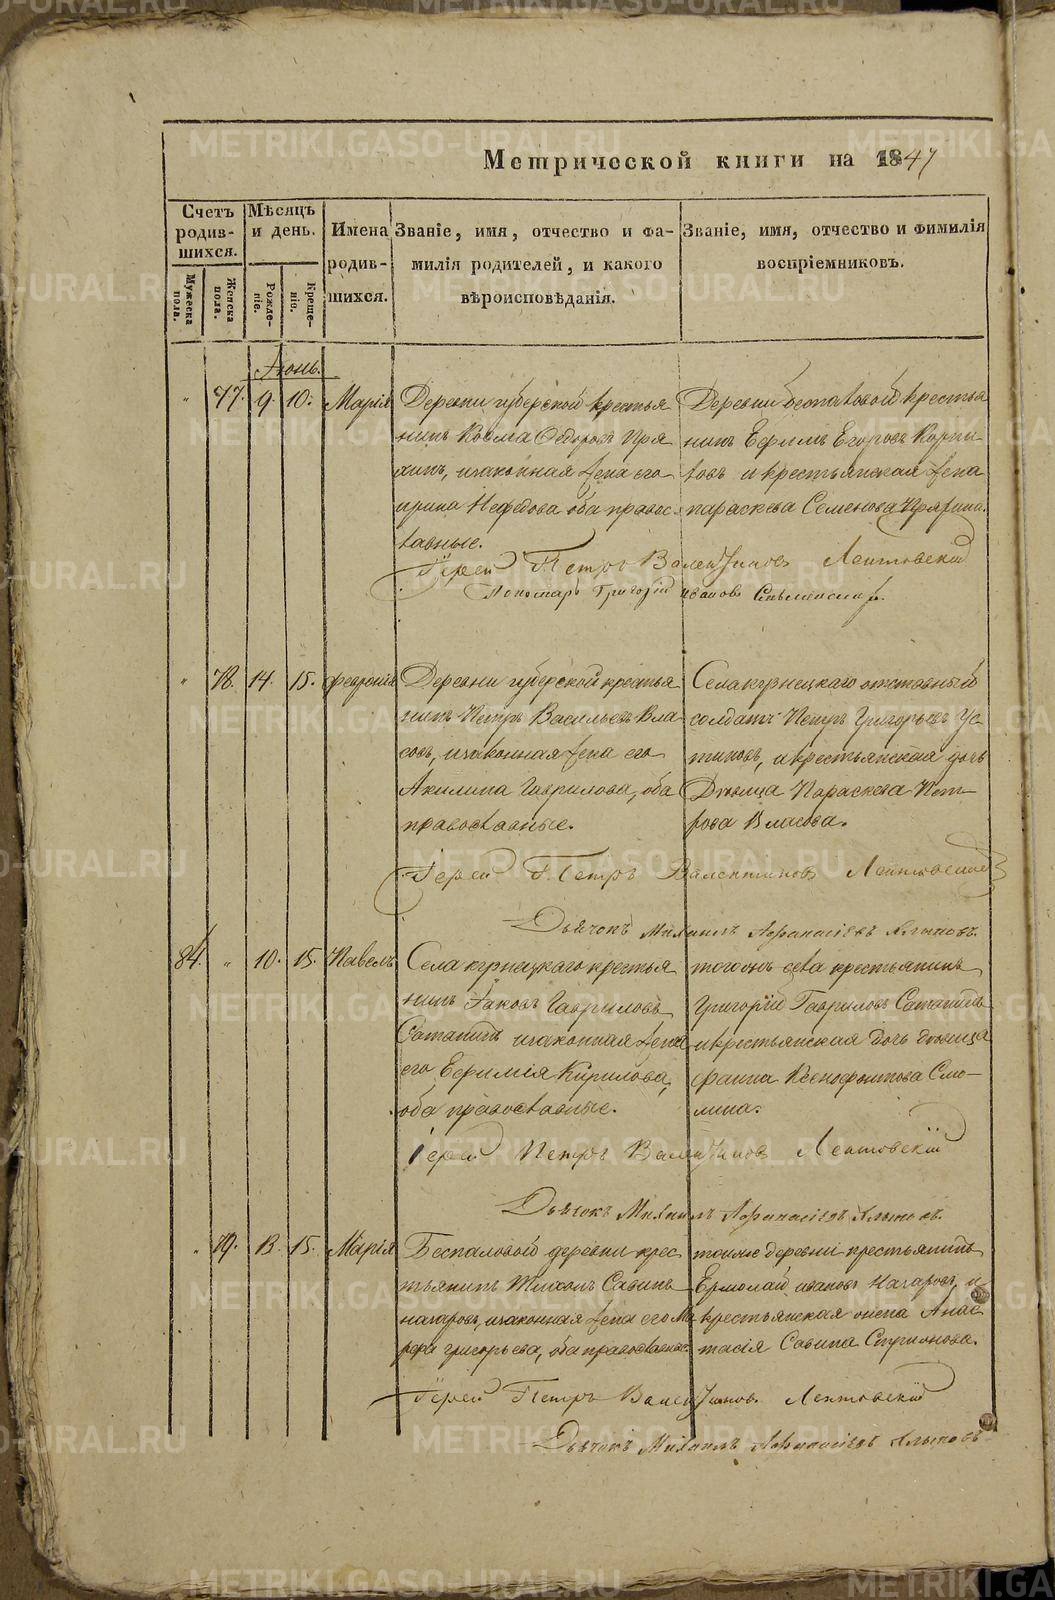 Метрической книги на 1847
Счетъ родив-шихся.
Мѣсяцъ и день.
Имена родив-шихся.
Званіе, имя, отчество и фа-
милія родителей, и какого
вѣроисповѣданія.
Званіе, имя, отчество и фимилія
воспріемниковъ.
Мужеска пола.
Женска пола.
Рожде-ніе.
Креще-ніе.
Іюнь.
" 77. 9. 10. Марія
Деревни губерской крестья
нинъ Косма Ѳедоровъ Пря
хинъ, изаконная жена его
ирина Нефедова оба правос-
лавные.
Деревни беспаловой крестья
нинъ Ефимъ Егоровъ
и крестьянская жена
параскева Семенова
Іерей Петръ Валентиновъ Лептовскій
Пономарь Григорій ивановъ
" 78. 14. 15. феврония
Деревни губерской крестья
нинъ Петръ Васильевъ Вла
совъ, изаконная жена его
Акилина Гаврилова, оба
православные.
Села кузнецкаго отставный
солдатъ Петръ Григорьевъ Ус
тиновъ, и крестьянская дочь
Дѣвица Параскева Пет-
рова Власова.
Іерей Петръ Валентиновъ Лептовскій
Дьячокъ Михаилъ Афанасіевъ
84. " 10. 15. Павелъ
Села кузнецкаго крестья
нинъ Іаковъ Гавриловъ
Сатанинъ изаконная жена
его Ефимія Кирилова,
оба православные.
тогожъ села крестьянинъ
Григорій Гавриловъ Сатанинъ
икрестьянская дочь дѣвица
фаина Ксенофонтова Смо-
лина.
Іерей Петръ Валентиновъ Лептовскій
Дьячокъ Михаилъ Афанасіевъ
" 79. 13. 15. Марія
Беспаловой деревни крес
тьянинъ Тихонъ Савинъ
изаконная жена его Ма
рфа григорьева, оба православные
тойже деревни крестьянинъ
Ермолай ивановъ и
крестьянская жена Анас
тасія Савина Спирионова.
Іерей Петръ Валентиновъ Лептовскій
Дьячокъ Михаилъ Афанасіевъ
METRIKI.GASO-URAL.RU